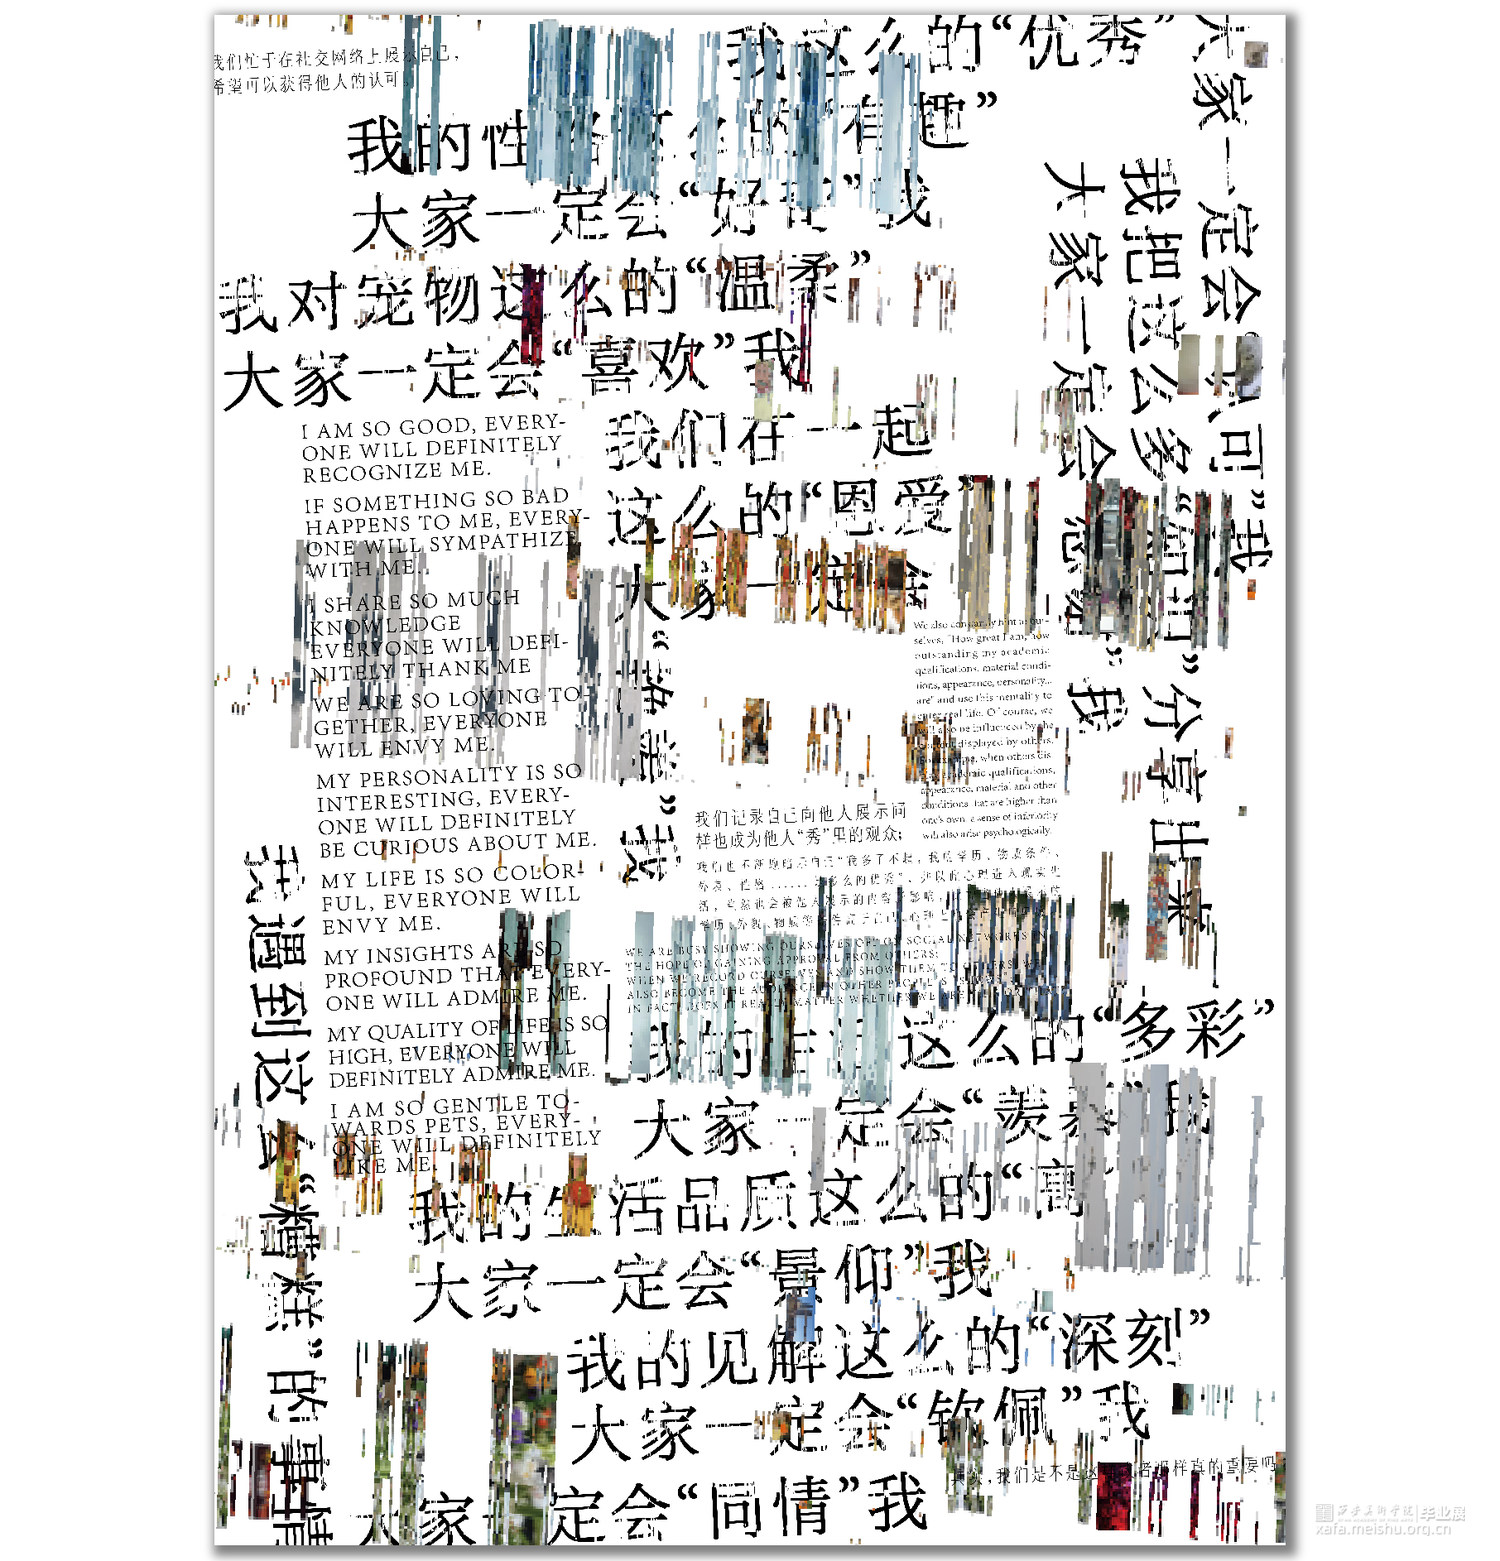 我们忙于在社交网络上展示自己，
希望可以获得他人的认可。
我这么的“优秀”
大家一定会“认可”我
我的性格这么的“有趣”
大家一定会“好奇”我
我对宠物这么的“温柔”
大家一定会“喜欢”我
我把这么多“知识”分享出来
大家一定会“感谢”我
我们在一起
这么的“恩爱”
大家一定会
“羡慕”我
I AM SO GOOD, EVERY-
ONE WILL DEFINITELY
RECOGNIZE ME.
IF SOMETHING SO BAD
HAPPENS TO ME, EVERY-
ONE WILL SYMPATHIZE
WITH ME.
I SHARE SO MUCH
KNOWLEDGE
EVERYONE WILL DEFI-
NITELY THANK ME
WE ARE SO LOVING TO-
GETHER, EVERYONE
WILL ENVY ME.
MY PERSONALITY IS SO
INTERESTING, EVERY-
ONE WILL DEFINITELY
BE CURIOUS ABOUT ME.
MY LIFE IS SO COLOR-
FUL, EVERYONE WILL
ENVY ME.
MY INSIGHTS ARE SO
PROFOUND THAT EVERY-
ONE WILL ADMIRE ME.
MY QUALITY OF LIFE IS SO
HIGH, EVERYONE WILL
DEFINITELY ADMIRE ME.
I AM SO GENTLE TO-
WARDS PETS, EVERY-
ONE WILL DEFINITELY
LIKE ME.
We also constantly hint to our-
selves, "How great I am, how
outstanding my academic
qualifications, material condi-
tions, appearance, personality...
are" and use this mentality to
enter real life. Of course, we
will also be influenced by the
content displayed by others.
For example, when others dis-
play academic qualifications,
appearance, material and other
conditions that are higher than
one's own, a sense of inferiority
will also arise psychologically.
我们记录自己向他人展示同
样也成为他人“秀”里的观众；
我们也不断地暗示自己“我多了不起，我的学历、物质条件、
外表、性格......多么的优秀”，并以此心理进入现实生
活，当然也会被他人展示的内容所影响，
WE ARE BUSY SHOWING OURSELVES OFF ON SOCIAL NETWORKS IN
THE HOPE OF GAINING APPROVAL FROM OTHERS;
WHEN WE RECORD OURSELVES AND SHOW THEM TO OTHERS, WE
ALSO BECOME THE AUDIENCE IN OTHER PEOPLE'S
IN FACT, DOES IT REALLY MATTER WHETHER WE ARE
我的生活这么的“多彩”
大家一定会“羡慕”我
我的生活品质这么的“高”
大家一定会“景仰”我
我的见解这么的“深刻”
大家一定会“钦佩”我
我遇到这么“糟糕”的事情
大家一定会“同情”我
其实，我们是不是这
样真的重要吗
西安美术学院 毕业展
xafa.meishu.org.cn